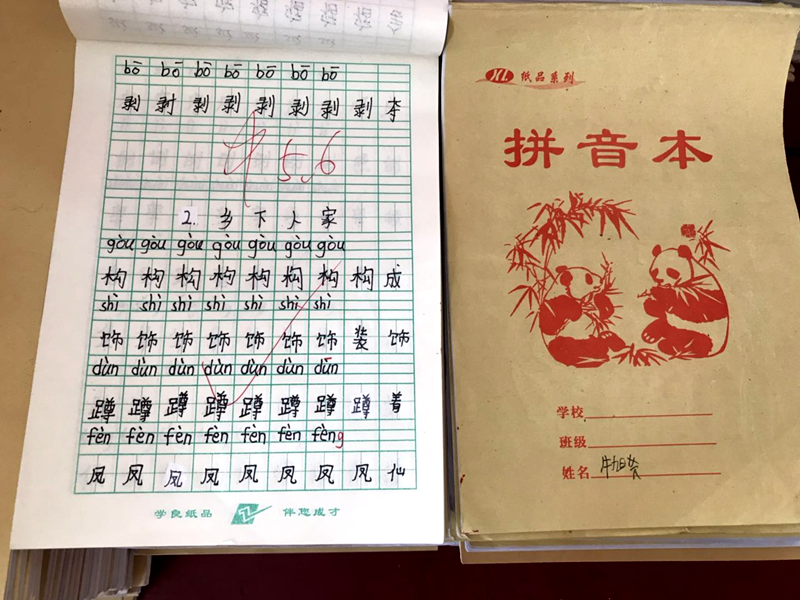 bō bō bō bō bō bō bō
剥 剥 剥 剥 剥 剥 剥 剥 夺
5.6
2. 乡 下 人 家
gòu gòu gòu gòu gòu gòu gòu
构 构 构 构 构 构 构 构 成
shì shì shì shì shì shì shì
饰 饰 饰 饰 饰 饰 饰 装 饰
dùn dùn dùn dùn dùn dùn dùn
蹲 蹲 蹲 蹲 蹲 蹲 蹲 蹲 着
fèn fèn fèn fèn fèn fèn fèng
凤 凤 凤 凤 凤 凤 凤 凤 仙
学良纸品 伴您成才
XL 纸品系列
拼音本
学校
班级
姓名